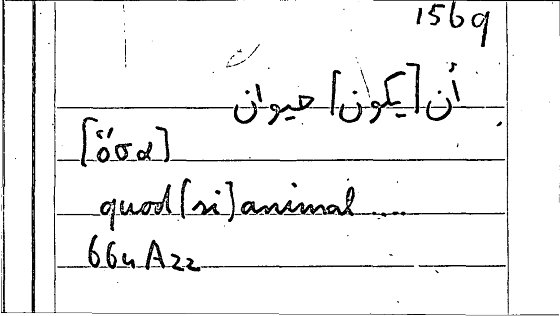 1569
أن [يكون] حيوان
[ὅσα]
quod [si] animal ....
664 A22